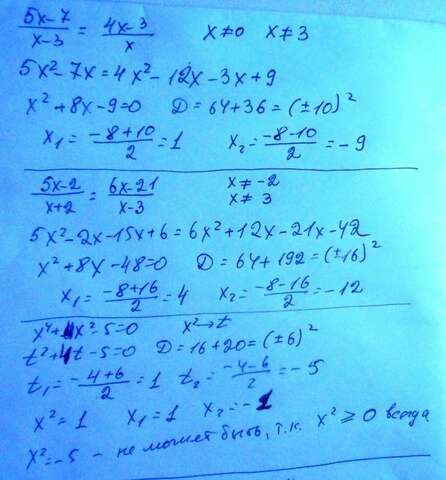 (5x-7)/(x-3) = (4x-3)/x    x≠0    x≠3
5x² - 7x = 4x² - 12x - 3x + 9
x² + 8x - 9 = 0    D = 64 + 36 = (±10)²
x₁ = (-8+10)/2 = 1    x₂ = (-8-10)/2 = -9
(5x-2)/(x+2) = (6x-21)/(x-3)    x ≠ -2
x ≠ 3
5x² - 2x - 15x + 6 = 6x² + 12x - 21x - 42
x² + 8x - 48 = 0    D = 64 + 192 = (±16)²
x₁ = (-8+16)/2 = 4    x₂ = (-8-16)/2 = -12
x⁴ + 4x² - 5 = 0    x² → t
t² + 4t - 5 = 0    D = 16 + 20 = (±6)²
t₁ = (-4+6)/2 = 1    t₂ = (-4-6)/2 = -5
x² = 1    x₁ = 1    x₂ = -1
x² = -5 - не может быть, т.к. x² ≥ 0 всегда